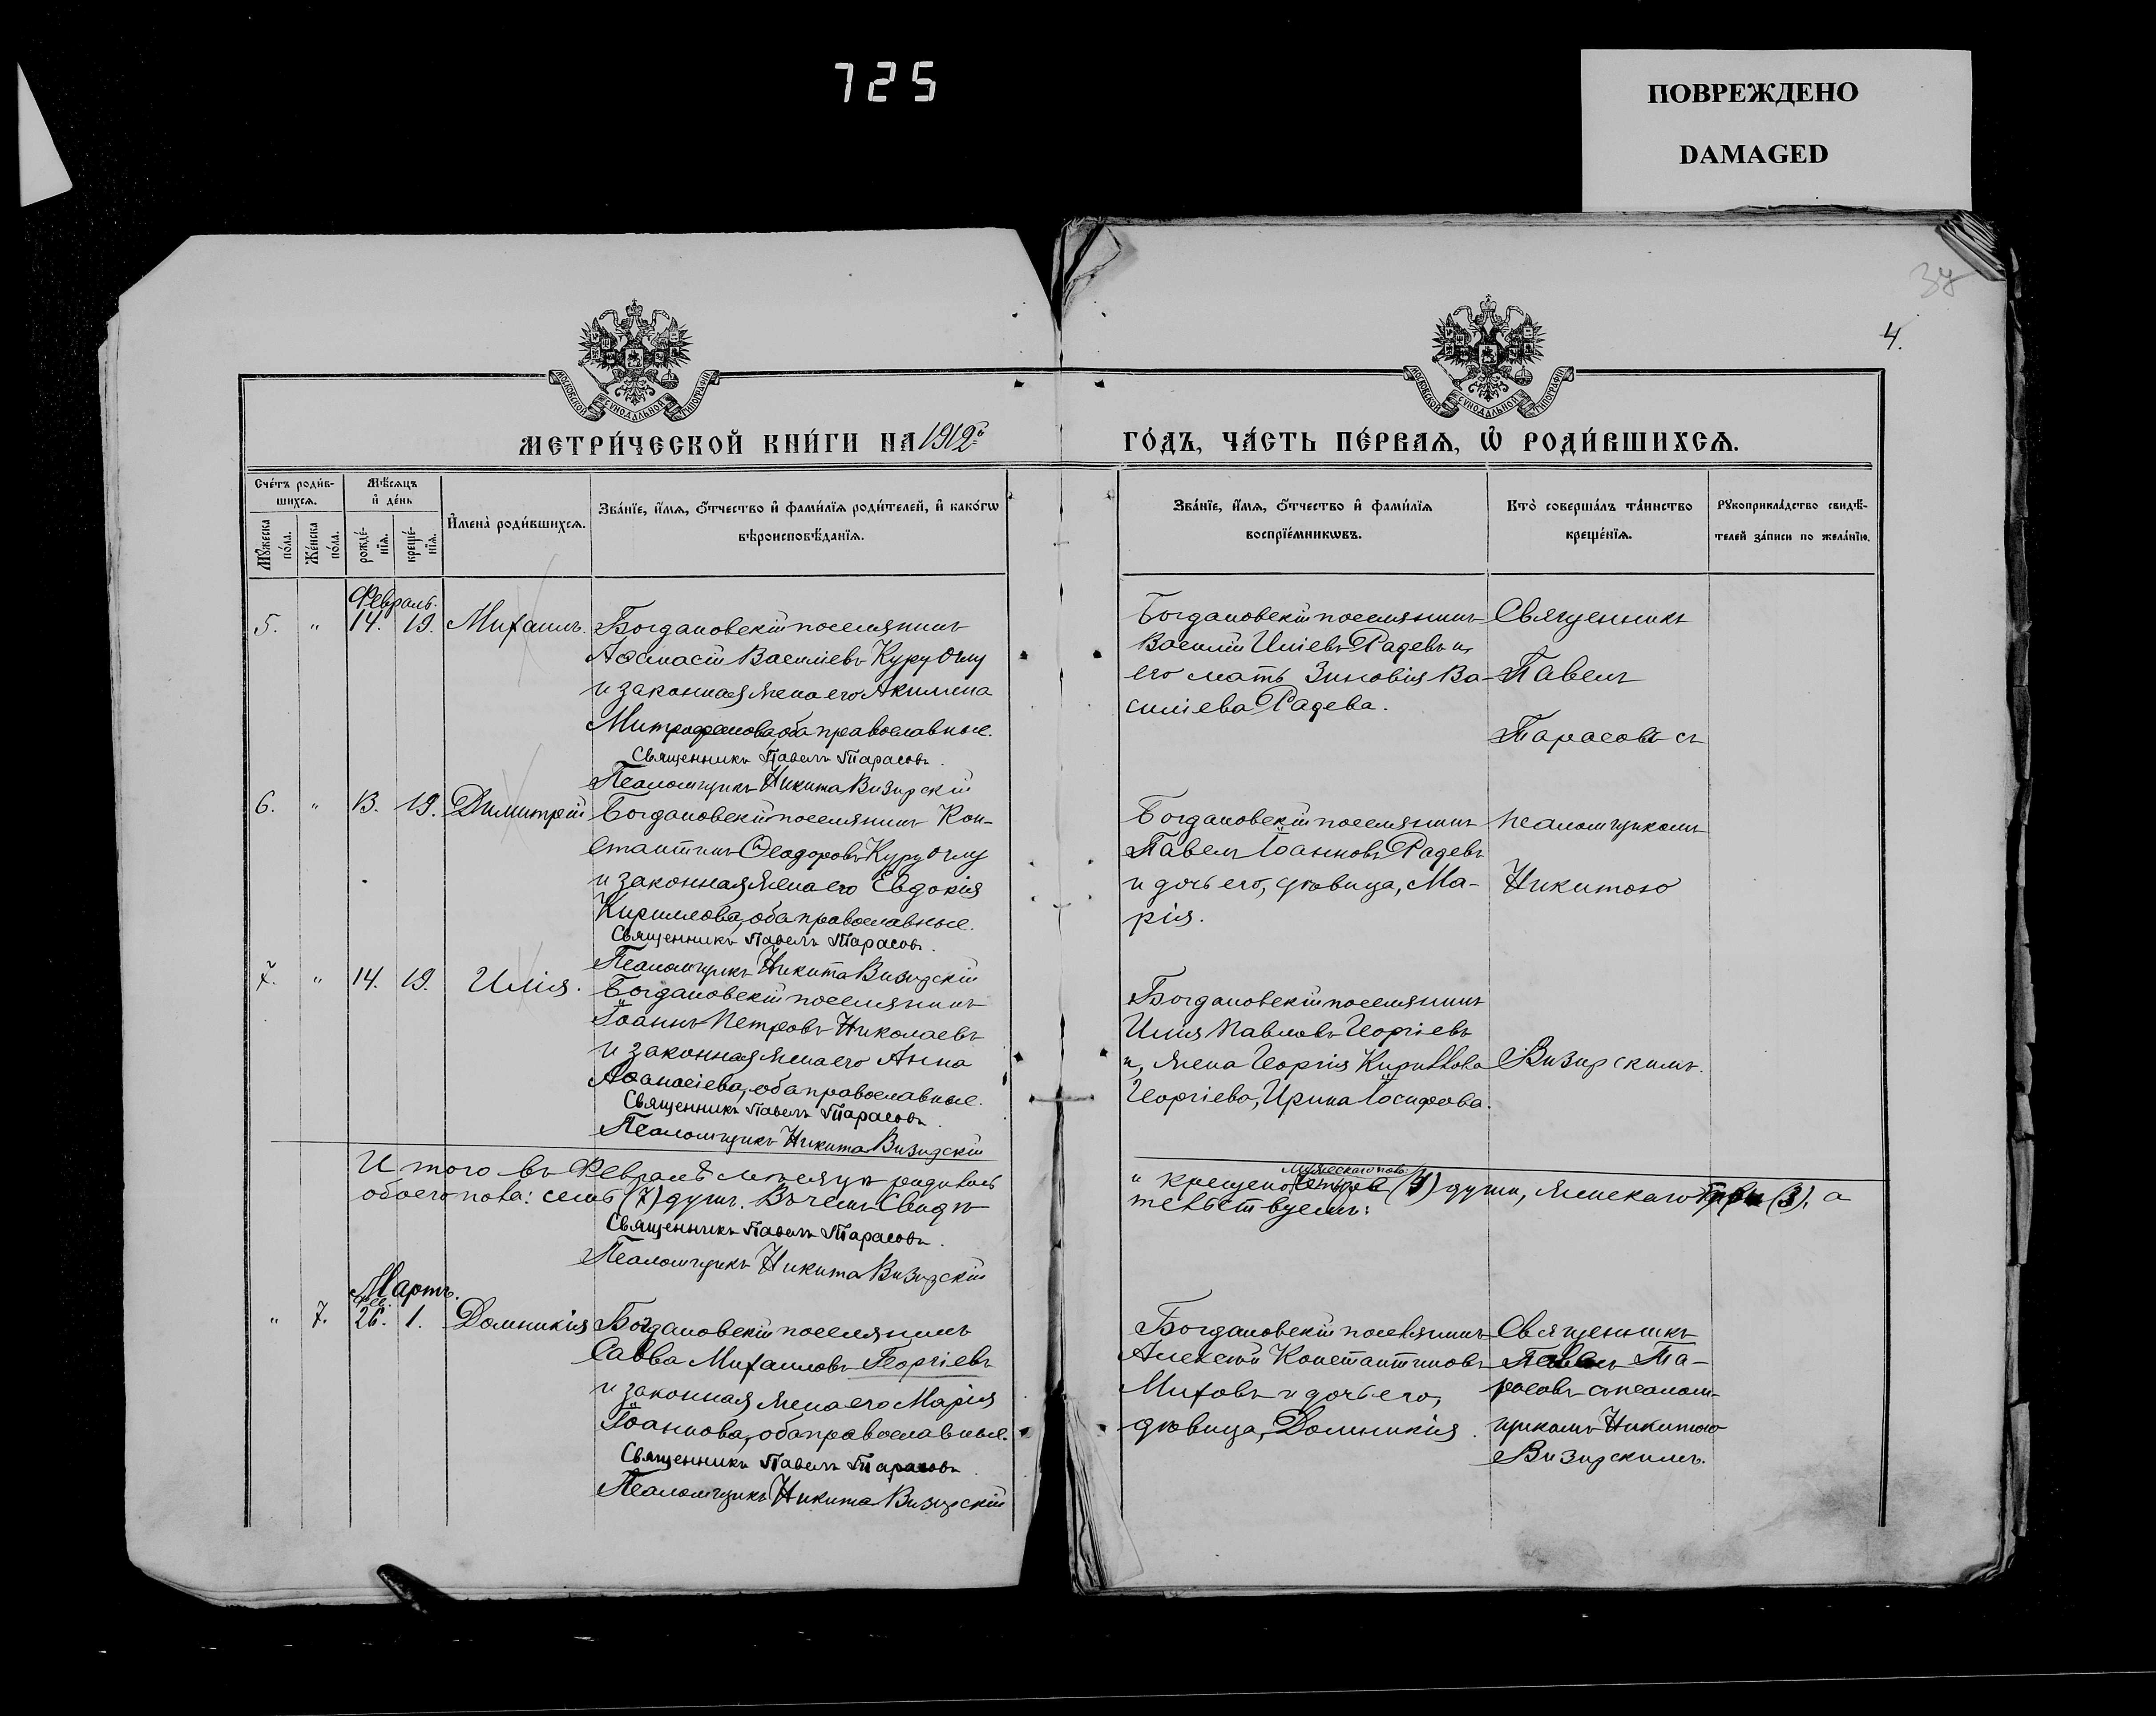 725
ПОВРЕЖДЕНО
DAMAGED
34
4.
МОСКОВСКОЙ СѴНОДАЛЬНОЙ ТИПОГРАФІИ
МОСКОВСКОЙ СѴНОДАЛЬНОЙ ТИПОГРАФІИ
МЕТРИ́ЧЕСКОЙ КНИ́ГИ НА 1912й
ГО́ДЪ, ЧА́СТЬ ПЕ́РВАѦ, Ѡ҆ РОДИ́ВШИХСѦ.
Сче́тъ роди́в-
шихсѧ.
Мѣ́сѧцъ
и҆ де́нь
Мꙋ́жеска
по́ла.
Же́нска
по́ла.
рожде́-
нїѧ.
креще́-
нїѧ.
И҆мена̀ роди́вшихсѧ.
Зва́нїе, и҆́мѧ, ѻ҆́тчество и҆ фами́лїѧ роди́телей, и҆ како́гѡ
вѣроисповѣ́данїѧ.
Зва́нїе, и҆́мѧ, ѻ҆́тчество и҆ фами́лїѧ
воспрїе́мникѡвъ.
Кто̀ соверша́лъ та́инство
креще́нїѧ.
Рꙋкоприкла́дство свидѣ́-
телей за́писи по жела́нїю.
Февраль.
5. " 14. 19. Михаилъ. Богдановскій поселянинъ
Аѳанасій Василіевъ Куру Оглу
и законная жена его Акилина
Митрофанова, оба православные.
Священникъ Павелъ Тарасовъ.
Псаломщикъ Никита Визирскій
Богдановскій поселянинъ
Василій Иліевъ Радевъ и
его мать Зиновія Ва-
силіева Радева.
Священникъ
Павелъ
Тарасовъ съ
6. " 13. 19. Димитрій Богдановскій поселянинъ Кон-
стантинъ Ѳеодоровъ Куру Оглу
и законная жена его Евдокія
Кириллова, оба православные.
Священникъ Павелъ Тарасовъ.
Псаломщикъ Никита Визирскій
Богдановскій поселянинъ
Павелъ Іоанновъ Радевъ
и дочь его, дѣвица, Ма-
рія.
псаломщикомъ
Никитою
7. " 14. 19. Илія. Богдановскій поселянинъ
Іоаннъ Петровъ Николаевъ
и законная жена его Анна
Аѳанасіева, оба православные.
Священникъ Павелъ Тарасовъ.
Псаломщикъ Никита Визирскій
Богдановскій поселянинъ
Илія Павловъ Георгіевъ
и, жена Георгія Кириллова
Георгіева, Ирина Іосифова.
Визирскимъ.
Итого въ Февралѣ мѣсяцѣ родилось
обоего пола: семь (7) душъ. Въ чемъ Свидѣ-
Священникъ Павелъ Тарасовъ.
Псаломщикъ Никита Визирскій
мужескаго пола:
и крещено четыре (4) души, женскаго три (3), а
тельствуемъ:
Мартъ.
Фев.
" 7. 26. 1. Домникія Богдановскій поселянинъ
Савва Михаиловъ Георгіевъ
и законная жена его Марія
Іоаннова, оба православные.
Священникъ Павелъ Тарасовъ.
Псаломщикъ Никита Визирскій
Богдановскій поселянинъ
Алексѣй Константиновъ
Митовъ и дочь его,
дѣвица, Домникія.
Священникъ
Павелъ Та-
расовъ съ псалом-
щикомъ Никитою
Визирскимъ.